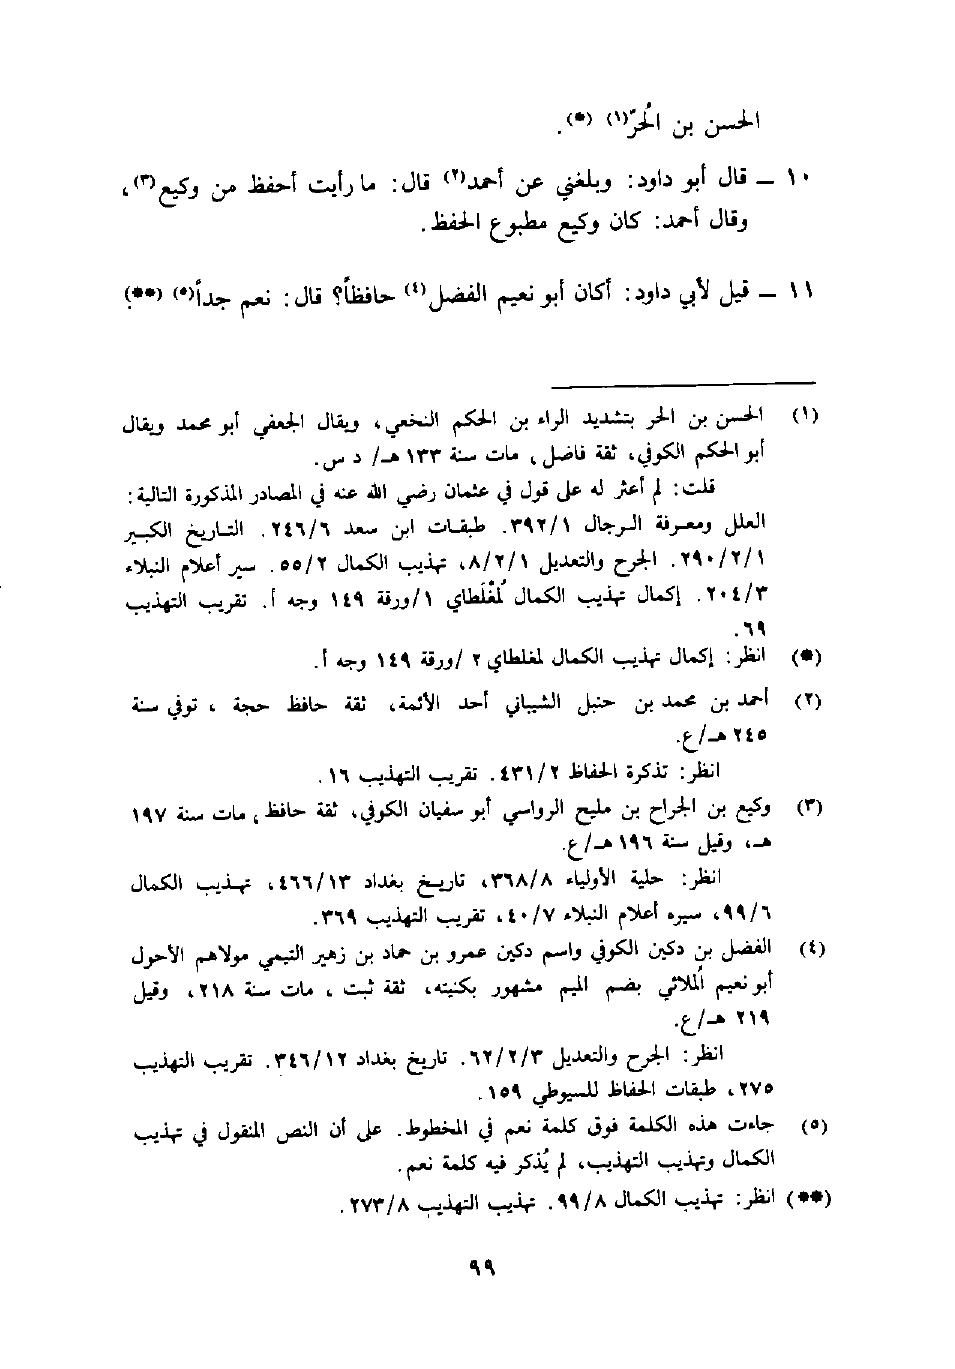 الحسن بن الحُرّ(١) (*).
١٠ ــ قال أبو داود: وبلغني عن أحمد(٢) قال: ما رأيت أحفظ من وكيع(٣)،
وقال أحمد: كان وكيع مطبوع الحفظ.
١١ ــ قيل لأبي داود: أكان أبو نعيم الفضل(٤) حافظاً؟ قال: نعم جداً(٥) (**).
(١) الحسن بن الحر بتشديد الراء بن الحكم النخعي، ويقال الجعفي أبو محمد ويقال
أبو الحكم الكوفي، ثقة فاضل، مات سنة ١٣٣ هـ/ د س.
قلت: لم أعثر له على قول في عثمان رضي الله عنه في المصادر المذكورة التالية:
العلل ومعرفة الرجال ٣٩٢/١. طبقات ابن سعد ٢٤٦/٦. التاريخ الكبير
٢٩٠/٢/١. الجرح والتعديل ٨/٢/١، تهذيب الكمال ٥٥/٢. سير أعلام النبلاء
٢٠٤/٣. إكمال تهذيب الكمال لمُغْلَطاي ١/ورقة ١٤٩ وجه أ. تقريب التهذيب
٦٩.
(*) انظر: إكمال تهذيب الكمال لمغلطاي ٢ /ورقة ١٤٩ وجه أ.
(٢) أحمد بن محمد بن حنبل الشيباني أحد الأئمة، ثقة حافظ حجة ، توفي سنة
٢٤٥ هـ/ع.
انظر: تذكرة الحفاظ ٤٣١/٢. تقريب التهذيب ١٦.
(٣) وكيع بن الجراح بن مليح الرواسي أبو سفيان الكوفي، ثقة حافظ، مات سنة ١٩٧
هـ، وقيل سنة ١٩٦ هـ/ع.
انظر: حلية الأولياء ٣٦٨/٨، تاريخ بغداد ٤٦٦/١٣، تهذيب الكمال
٩٩/٦، سيره أعلام النبلاء ٤٠/٧، تقريب التهذيب ٣٦٩.
(٤) الفضل بن دكين الكوفي واسم دكين عمرو بن حماد بن زهير التيمي مولاهم الأحول
أبو نعيم المُلائي بضم الميم مشهور بكنيته، ثقة ثبت ، مات سنة ٢١٨، وقيل
٢١٩ هـ/ع.
انظر: الجرح والتعديل ٦٢/٢/٣. تاريخ بغداد ٣٤٦/١٢. تقريب التهذيب
٢٧٥، طبقات الحفاظ للسيوطي ١٥٩.
(٥) جاءت هذه الكلمة فوق كلمة نعم في المخطوط. على أن النص المنقول في تهذيب
الكمال وتهذيب التهذيب، لم يُذكر فيه كلمة نعم.
(**) انظر: تهذيب الكمال ٩٩/٨. تهذيب التهذيب ٢٧٣/٨.
٩٩